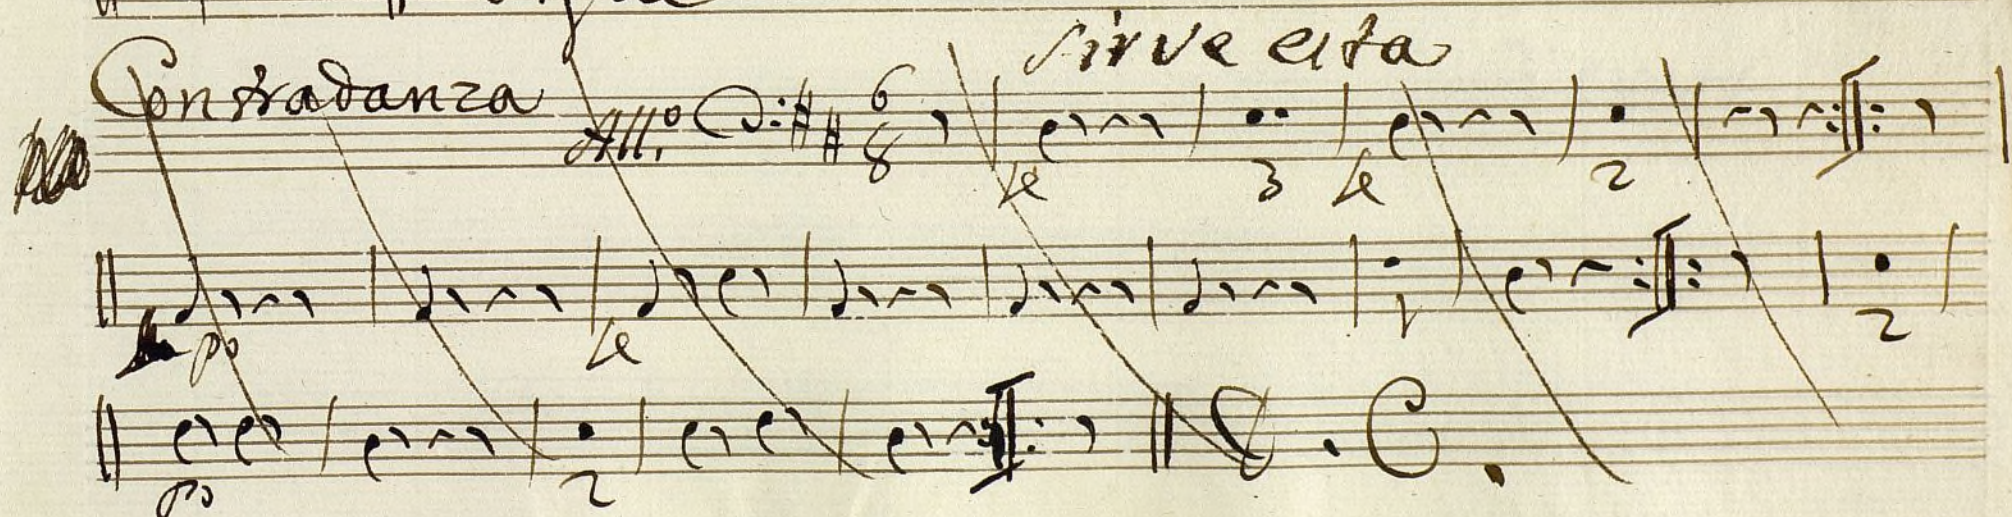 sirve esta
Contradanza All.º 6 8
fe 3 fe 2
po fe 1 2
po 2 D. C.